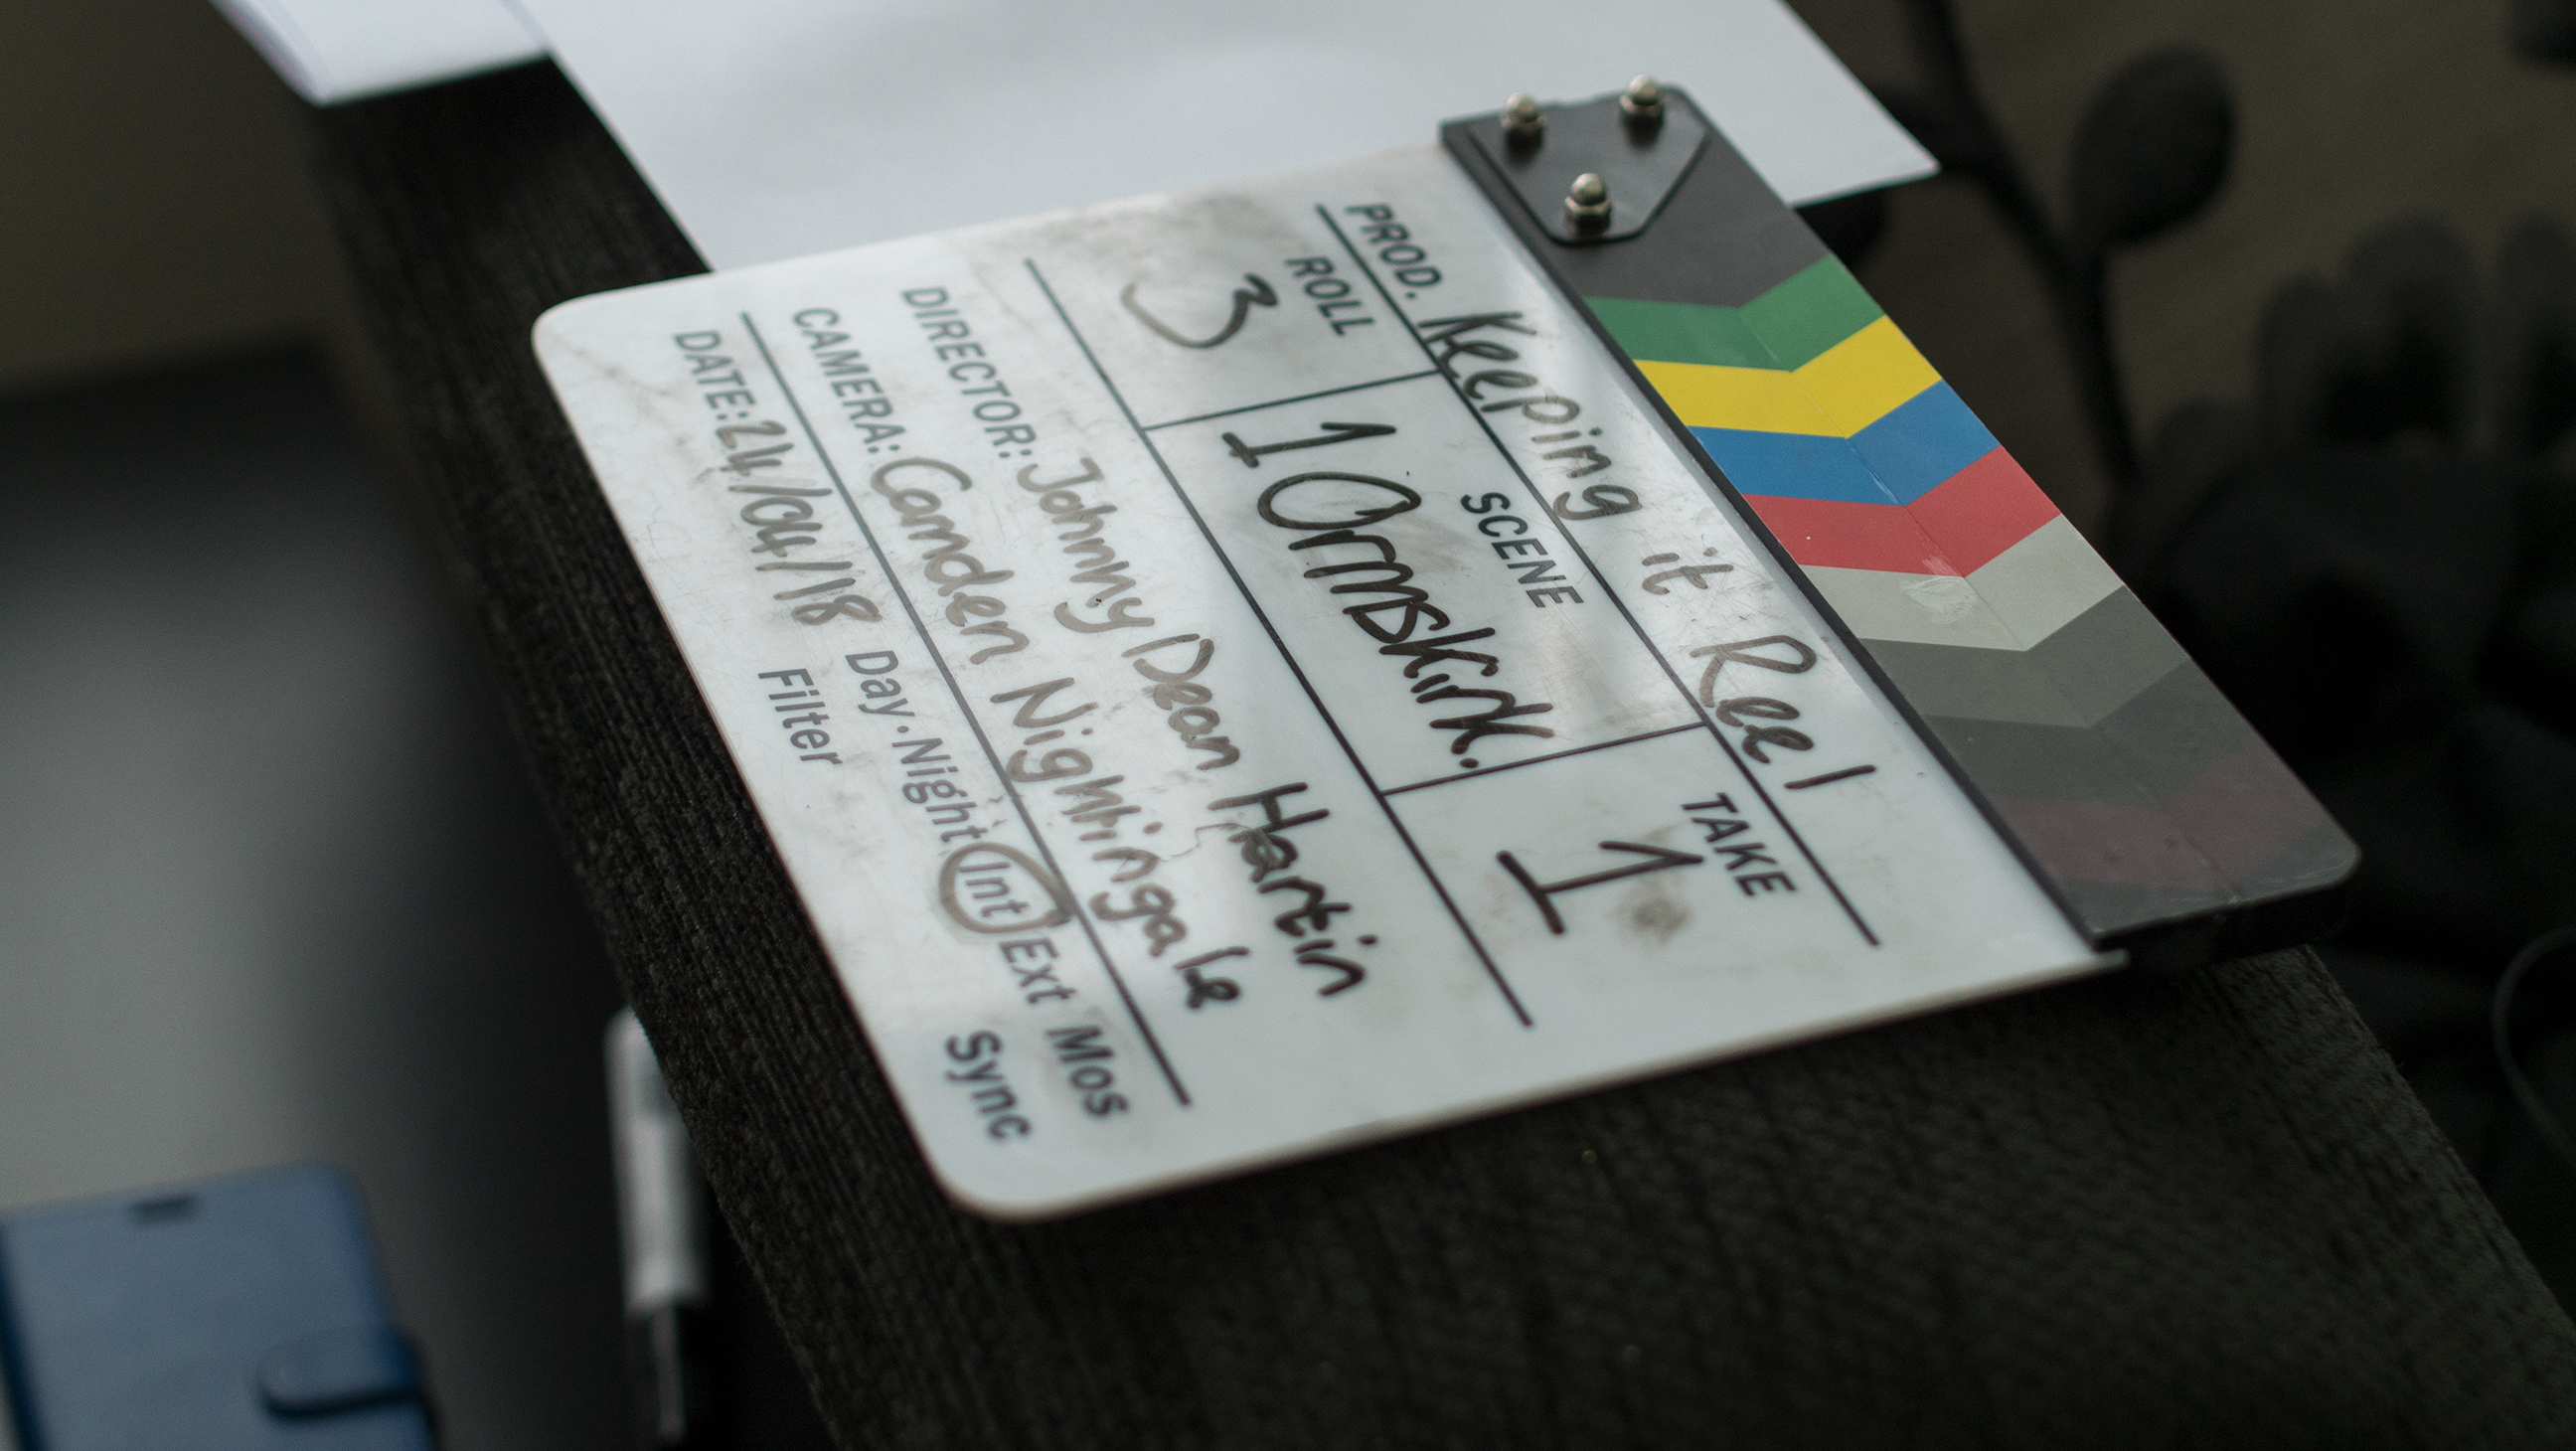 PROD. Keeping it Reel
ROLL SCENE TAKE
3 1 Ormskirk. 1
DIRECTOR: Johnny Dean Hartin
CAMERA: Camden Nightingale
DATE: 24/04/18 Day·Night Int Ext Mos
Filter Sync